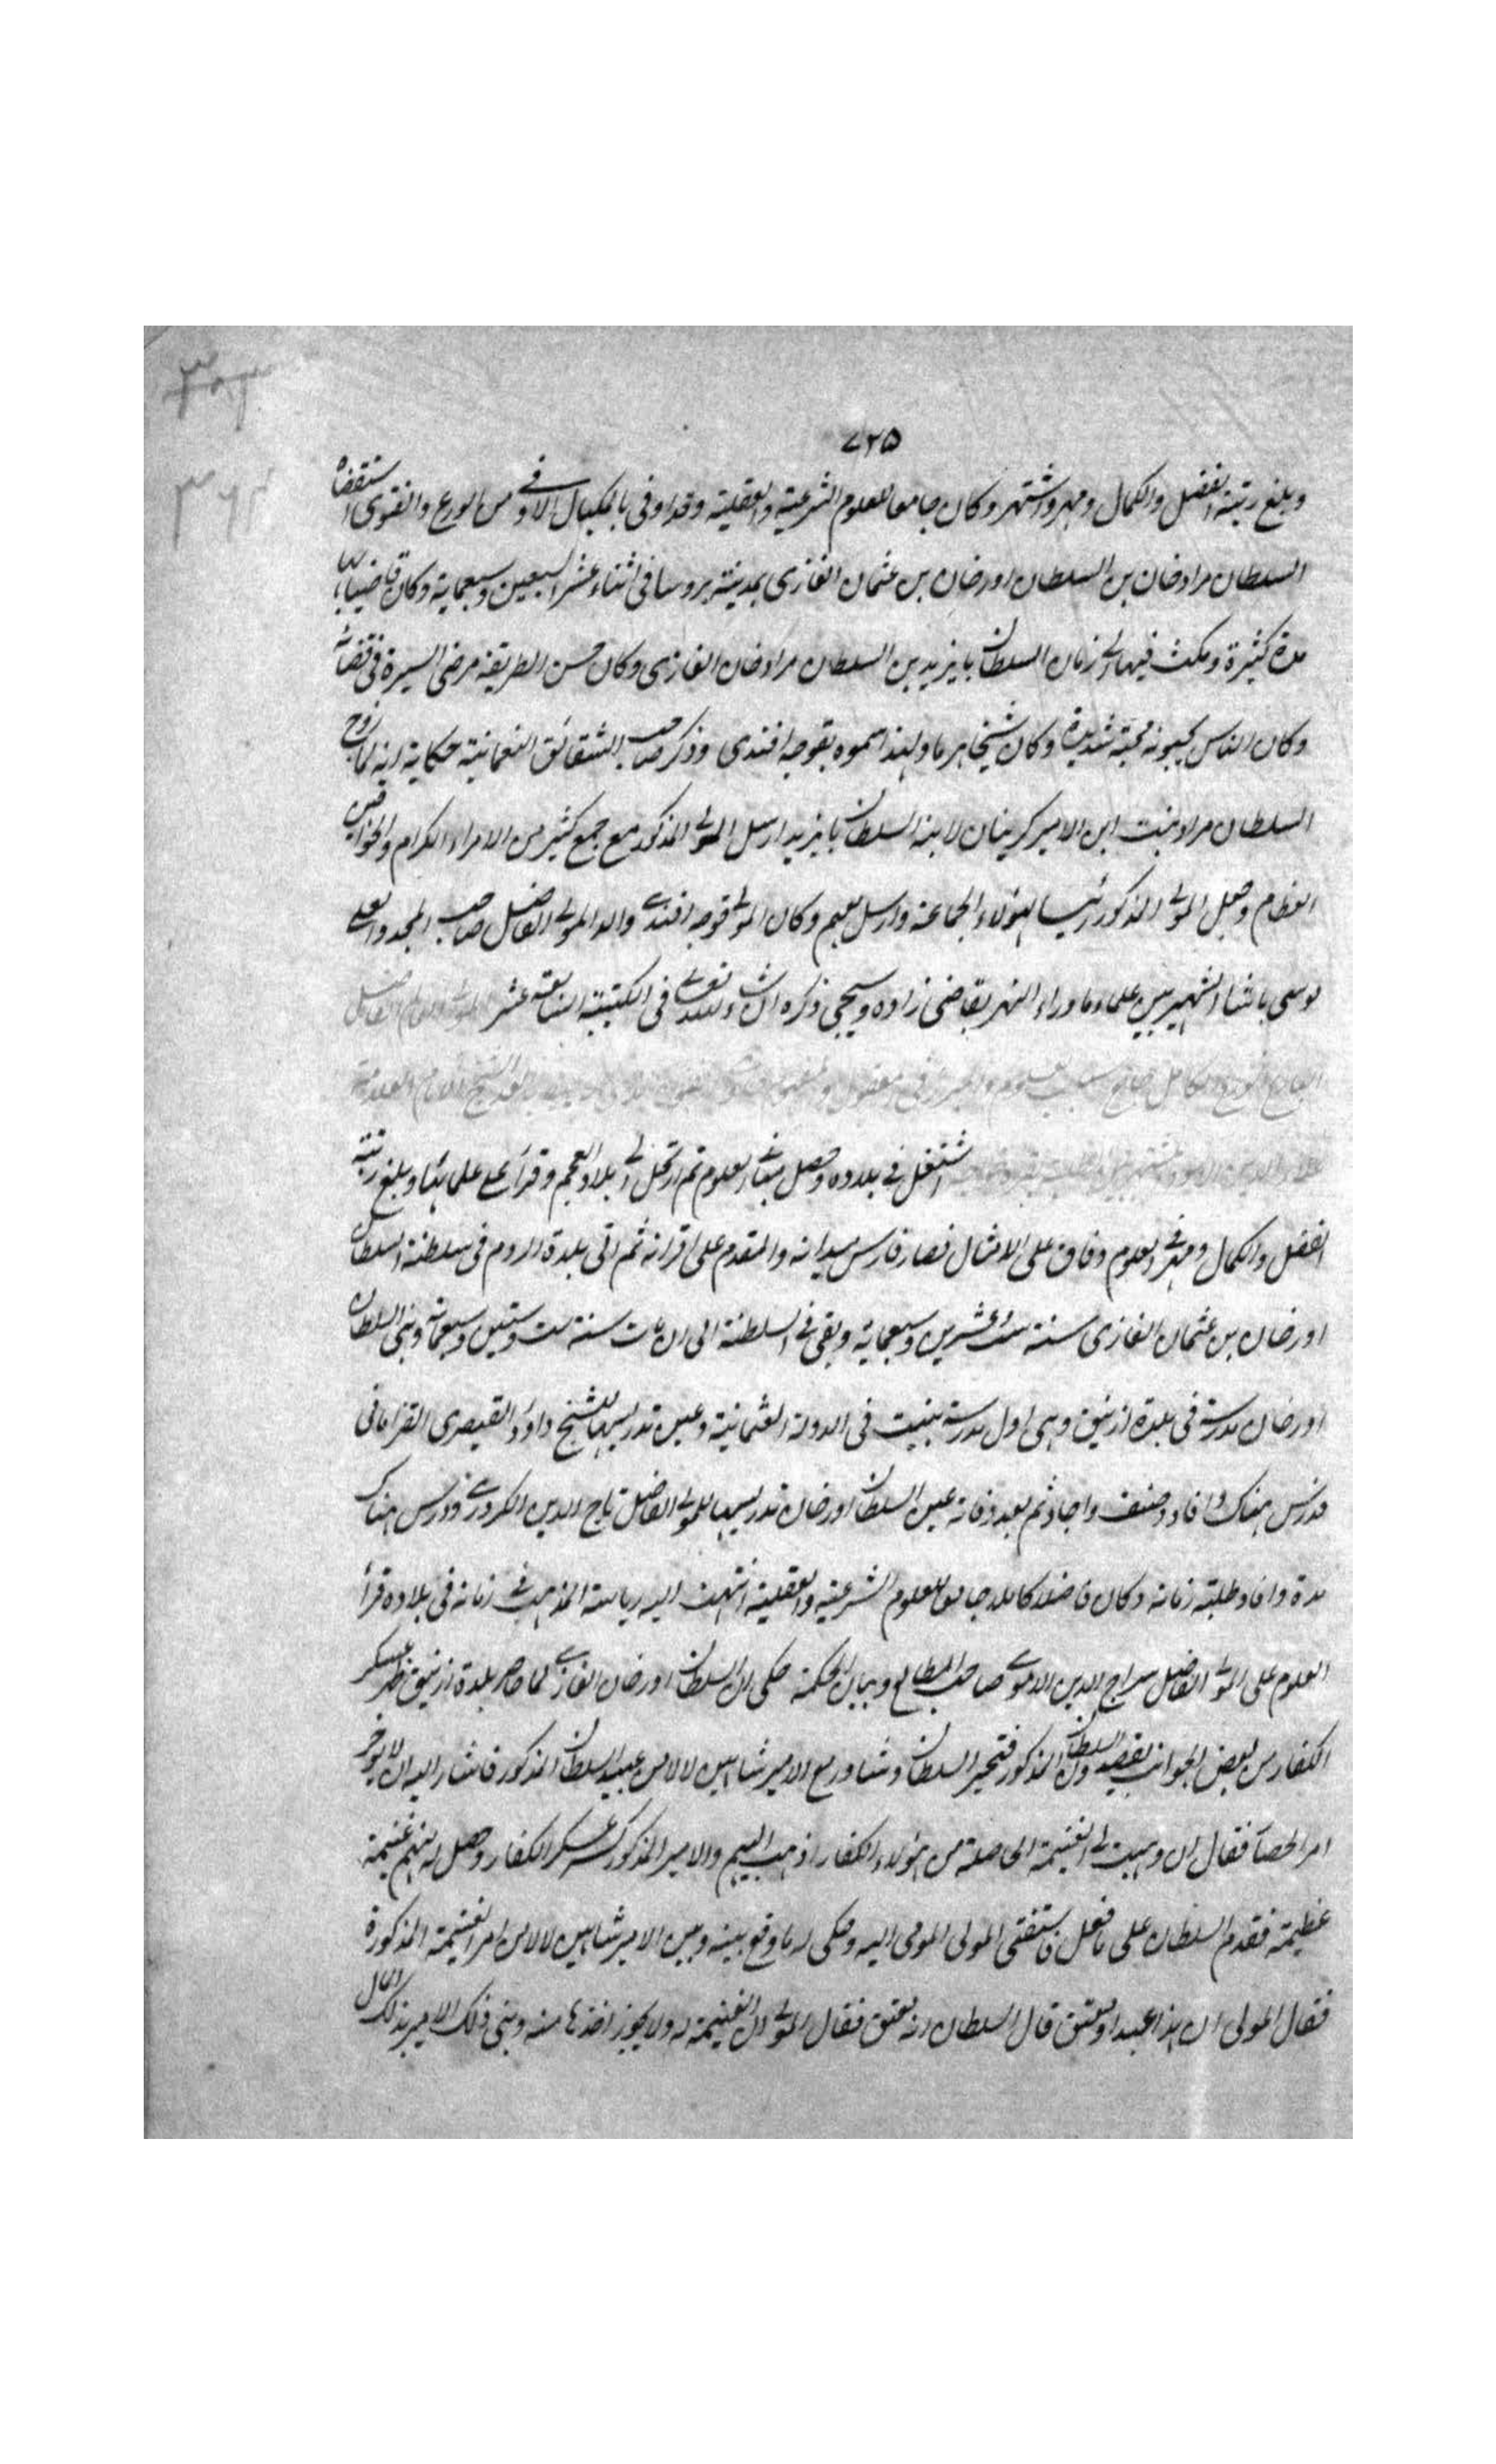 ٧٢٥
وبلغ رتبة الفضل والكمال ومهر واشتهر وكان جامعا للعلوم الشرعية والعقلية وقد اوفى بالمكيال الاوفى من الورع والتقوى استقضاه
السلطان مراد خان بن السلطان اورخان بن عثمان الغازى بمدينة بروسا فى اثناء عشر السبعين وسبعماية وكان قاضيا بها
مدة كثيرة ومكث فيها الى زمان السلطان بايزيد بن السلطان مراد خان الغازى وكان حسن الطريقة مرضى السيرة فى قضائه
وكان الناس يحبونه محبة شديدة وكان شيخا هرما ولهذا سموه بقوجه افندى وذكر صاحب الشقائق النعمانية حكاية انه لما زوج
السلطان مراد بنت ابن الامير كرينان لابنه السلطان بايزيد ارسل المولى المذكور مع جمع كثير من الامراء الكرام والخواتين
العظام وجعل المولى المذكور رئيسا لهؤلاء الجماعة وارسل معهم وكان المولى قوجه افندى والد المولى الفاضل صاحب المجد والعلى
موسى باشا الشهير بين علماء ما وراء النهر بقاضى زاده وسيجى ذكره ان شاء الله تعالى فى الكتيبة السابعة عشر المولى الامام الفاضل
البارع الورع الكامل جامع العلوم فى المعقول الشيخ الامام العلامة
اشتغل فى بلاده وحصل مبانى العلوم ثم ارتحل الى بلاد العجم وقرأ على علمائها وبلغ رتبة
الفضل والكمال ومهر فى العلوم وفاق على الامثال فصار فارس ميدانه والمقدم على اقرانه ثم اتى بلدة الروم فى سلطنة السلطان
اورخان بن عثمان الغازى سنة ست وعشرين وسبعمائه وبقى فى السلطنة الى ان مات سنة ست وستين وسبعمائة وبنى السلطان
اورخان مدرسة فى بلدة ازنيق وهى اول مدرسة بنيت فى الدولة العثمانية وعين تدريسها للشيخ داود القيصرى القرامانى
فدرس هناك وافاد وصنف واجاد ثم بعد وفاته عين السلطان اورخان تدريسها للمولى الفاضل تاج الدين الكردرى ودرس هناك
مدة وافاد طلبة زمانه وكان فاضلا كاملا جامعا للعلوم الشرعية والعقلية انتهت اليه رياسة المذهب فى زمانه فى بلاده قرأ
العلوم على المولى الفاضل سراج الدين الارموى صاحب المطالع وبيان الحكمة حكى ان السلطان اورخان الغازى لما حاصر بلدة ازنيق ظهر عسكر
الكفار من بعض الجوانب يقصدون السلطان المذكور فتحير السلطان وشاور مع الامير شاهين لالا من عبيد السلطان المذكور فاشار اليه ان لا يؤخر
امر الحصار فقال ان وهبت لى الغنيمة الحاصلة من هؤلاء الكفار اذهب اليهم والامير المذكور كسر عسكر الكفار وحصل له منهم غنيمة
عظيمة فقدم السلطان على ما فعل فاستفتى المولى المومى اليه وحكى له ما وقع بينه وبين الامير شاهين لالا من امر الغنيمة المذكورة
فقال المولى ان هذا عبد او معتق قال السلطان انه معتق فقال المولى ان الغنيمة له ولا يجوز اخذها منه وبنى ذلك الامير بذلك المال